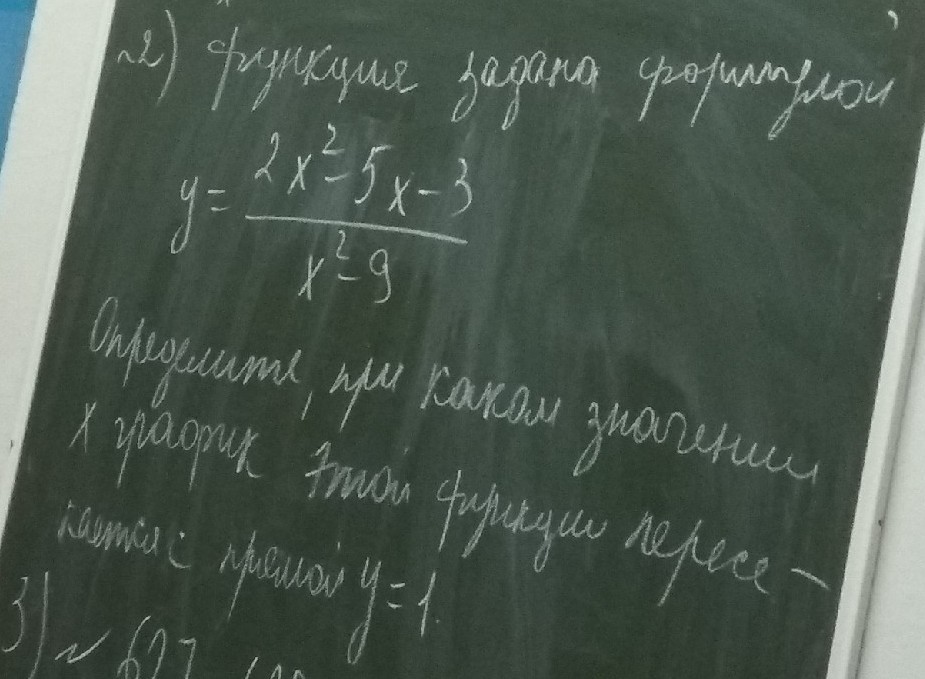 2) функция задана формулой
y = (2x² - 5x - 3) / (x² - 9)
Определите, при каком значении
x график этой функции пересе-
кается с прямой y = 1.
3) № 627